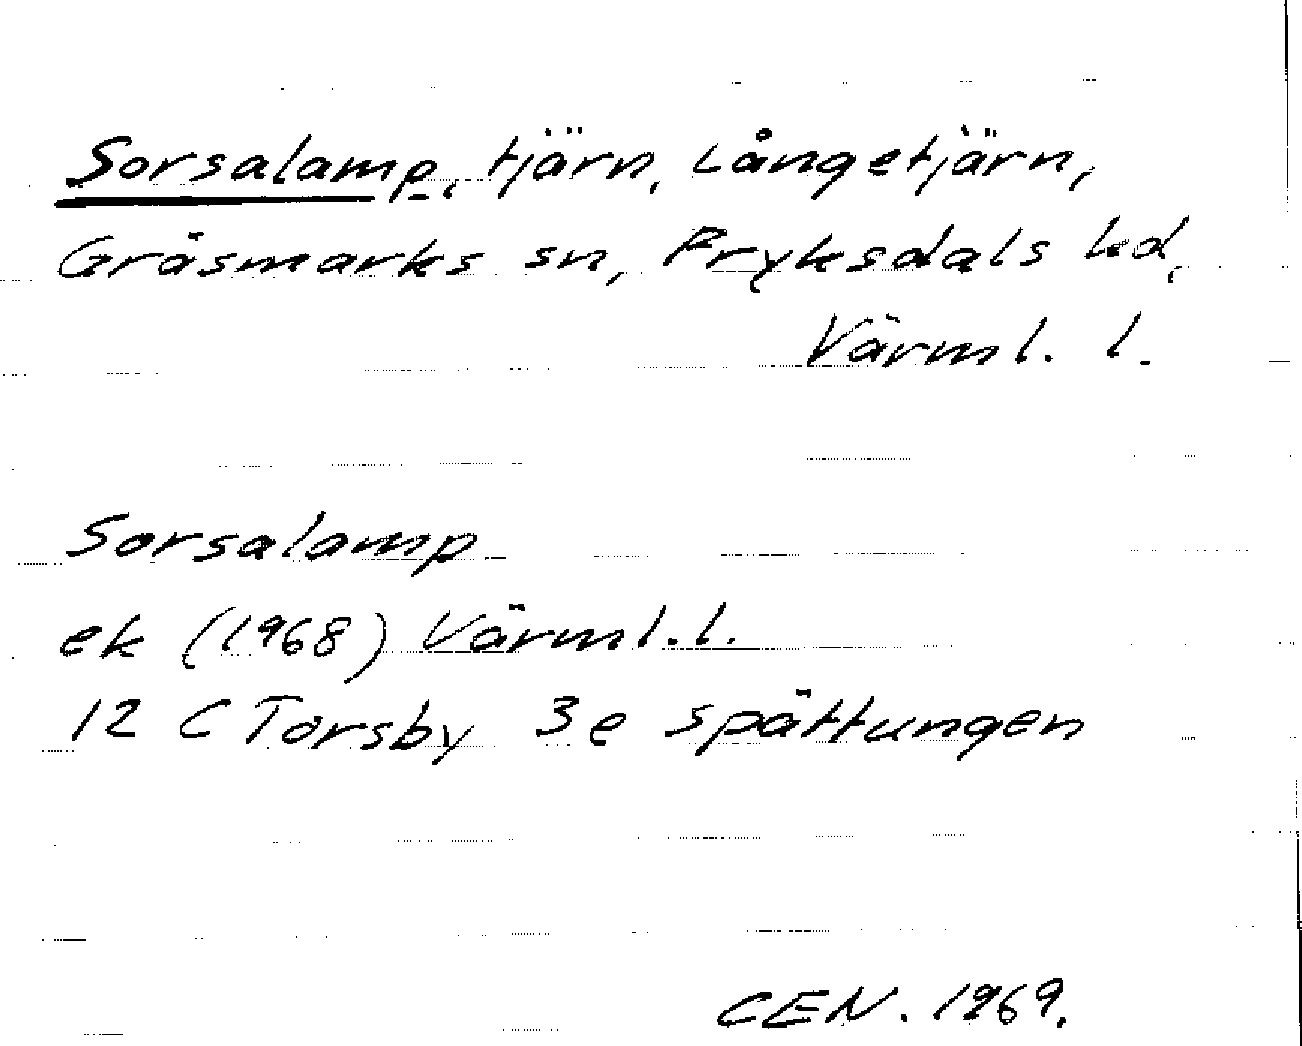 Sorsalamp, tjärn, Långetjärn,
Gräsmarks sn, Fryksdals hd,
Värml. l.
Sorsalamp
ek (1968) Värml. l.
12 C Torsby 3e Spättungen
CEN. 1969.